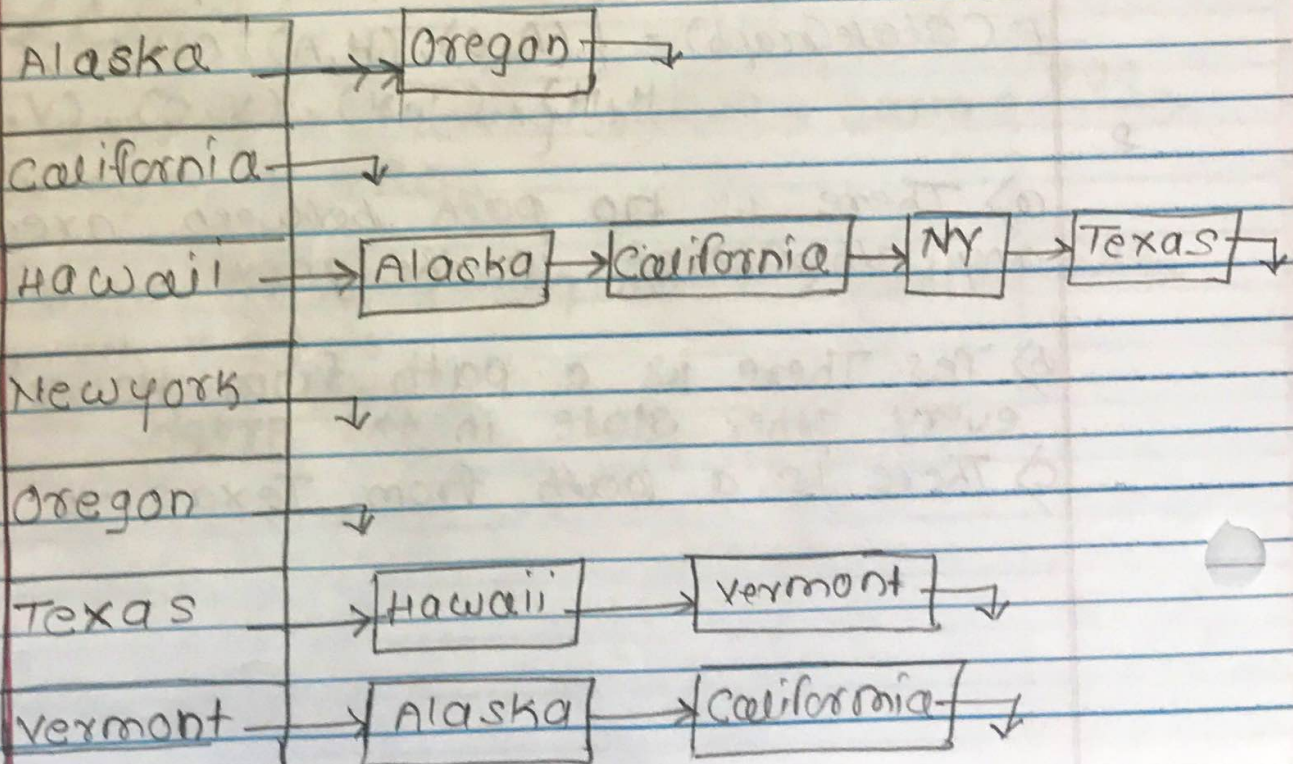 Alaska Oregon
California
Hawaii Alaska California NY Texas
Newyork
Oregon
Texas Hawaii Vermont
Vermont Alaska California